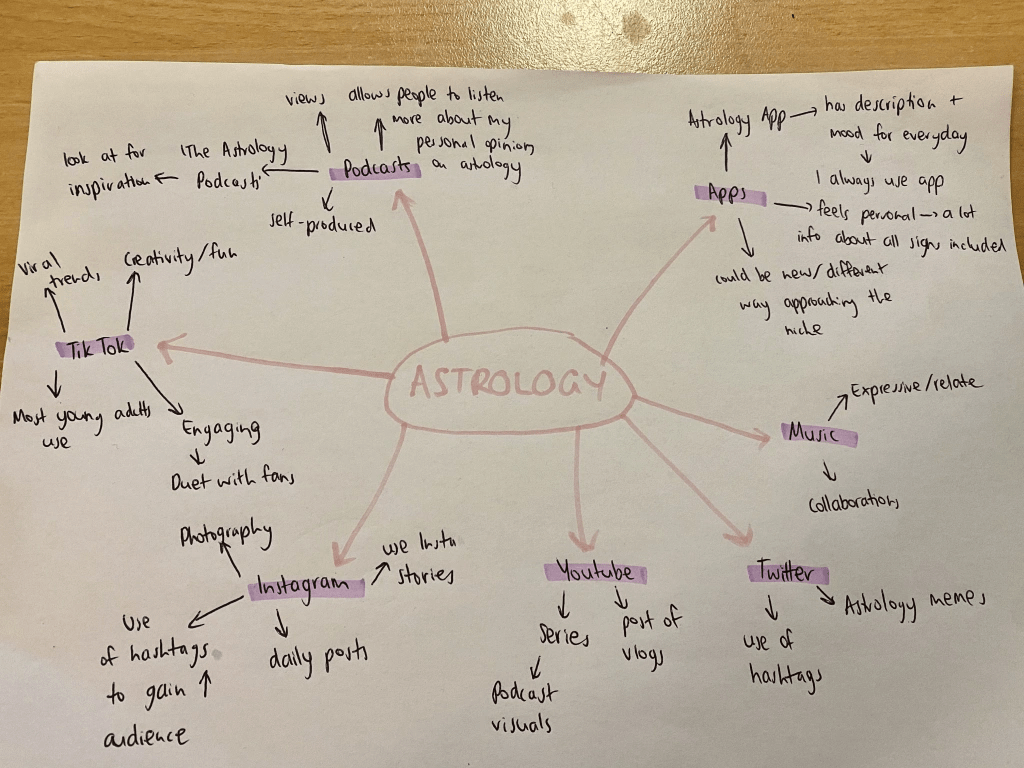 views
allows people to listen
more about my
personal opinions
on astrology
Podcasts
'The Astrology
Podcasts'
look at for
inspiration
self-produced
Astrology App
has description +
mood for everyday
I always use app
Apps
feels personal → a lot
info about all signs included
could be new/different
way approaching the
niche
viral
trends
Creativity/fun
TikTok
Most young adults
use
Engaging
Duet with fans
ASTROLOGY
Expressive/relate
Music
Collaborations
Photography
use Insta
stories
Instagram
Use
of hashtags
to gain ↑
audience
daily posts
Youtube
series
Podcast
visuals
post of
vlogs
Twitter
Astrology memes
use of
hashtags